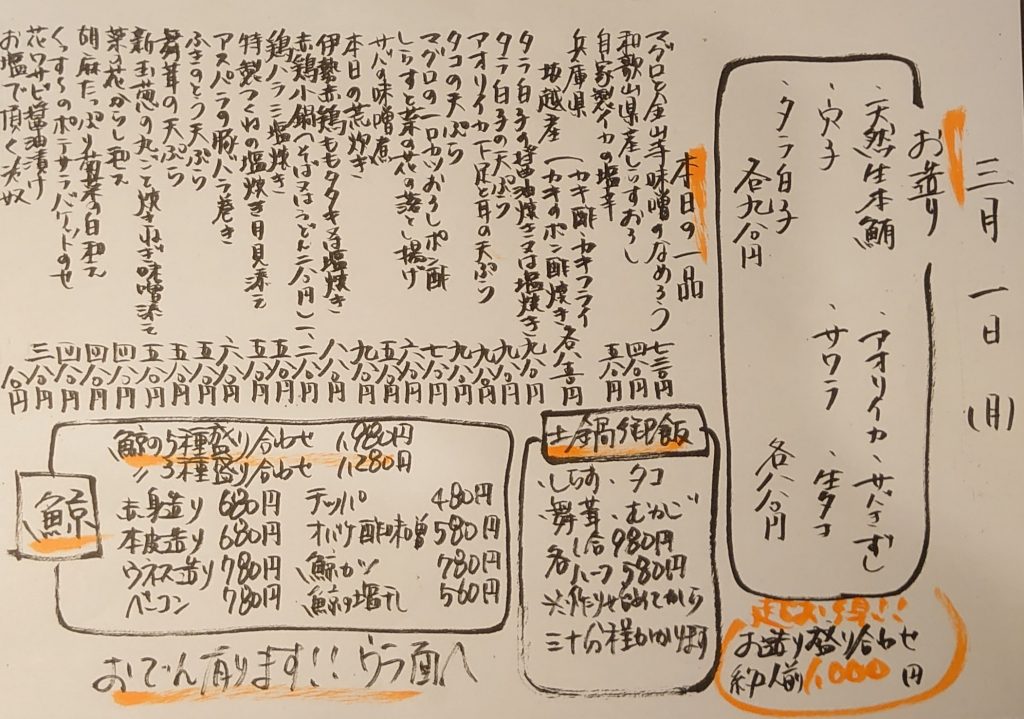 三月一日(月)
お造り
・天然生本鮪
・穴子
・タラ白子
各九八〇円
・アオリイカ・サバきずし
・サワラ・生タコ
各八八〇円
超お得!!
お造り盛り合わせ
約一人前1,000円
本日の一品
マグロと金山寺味噌のなめろう 七三〇円
和歌山県産しらすおろし 四八〇円
自家製イカの塩辛 五八〇円
兵庫県坂越産
(カキ酢・カキフライ
(カキのポン酢焼き
タラ白子の醤油焼き又は塩焼き 九八〇円
タラ白子の天ぷら 九八〇円
アオリイカ下足と耳の天ぷら 九八〇円
タコの天ぷら 九八〇円
マグロの一口カツおろしポン酢 七八〇円
しらすと菜の花の落とし揚げ 六八〇円
サバの味噌煮 五八〇円
本日の荒炊き 九八〇円
伊勢赤鶏ももタタキ又は塩焼き 八八〇円
赤鶏小鍋(そば又はうどん二八〇円) 一、二八〇円
鶏ハラミ塩焼き 五八〇円
特製つくねの塩焼き月見添え 五八〇円
アスパラの豚バラ巻き 六八〇円
ふきのとう天ぷら 五八〇円
舞茸の天ぷら 五八〇円
新玉葱の丸ごと炊きねぎ味噌添え 五八〇円
菜の花からし和え 四八〇円
胡麻たっぷり菊菜の白和え 四八〇円
くんすーのポテサラバゲットのせ 四八〇円
花ワサビ醤油漬け
お塩で頂く冷奴 三八〇円
土鍋御飯
・しらす・タコ
・舞茸・むかご
各一合980円
ハーフ580円
※作り始めてから
三十分程かかります
鯨
鯨の5種盛り合わせ 1,980円
〃3種盛り合わせ 1,280円
赤身造り 680円 テッパ 480円
本皮造り 680円 オバケ酢味噌 580円
ウネス造り 780円 鯨カツ 780円
ベーコン 780円 鯨の塩干し 560円
おでん有ります!!ウラ面へ